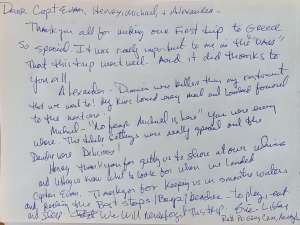 Dear Capt Evan, Henry, Michael, + Alexander -
Thank you all for making our first trip to Greece
so special. It was really important to me as the
that this trip went well. And it did thanks to
you all.
Alexander - Dinners were better than any restaurant
that we went to! My kids loved every meal and looked forward
to the next one.
Michael - "No fear Michael is here" You were every
where. The table settings were really special and the
Delicious!
Henry thank you for getting us to shore at our whims
and always know what to look for when we landed
Captain Evan, Thank you for keeping us in smooth waters
and the best stops / Bays / beaches - to play, eat
and sleep We will never forget this trip.